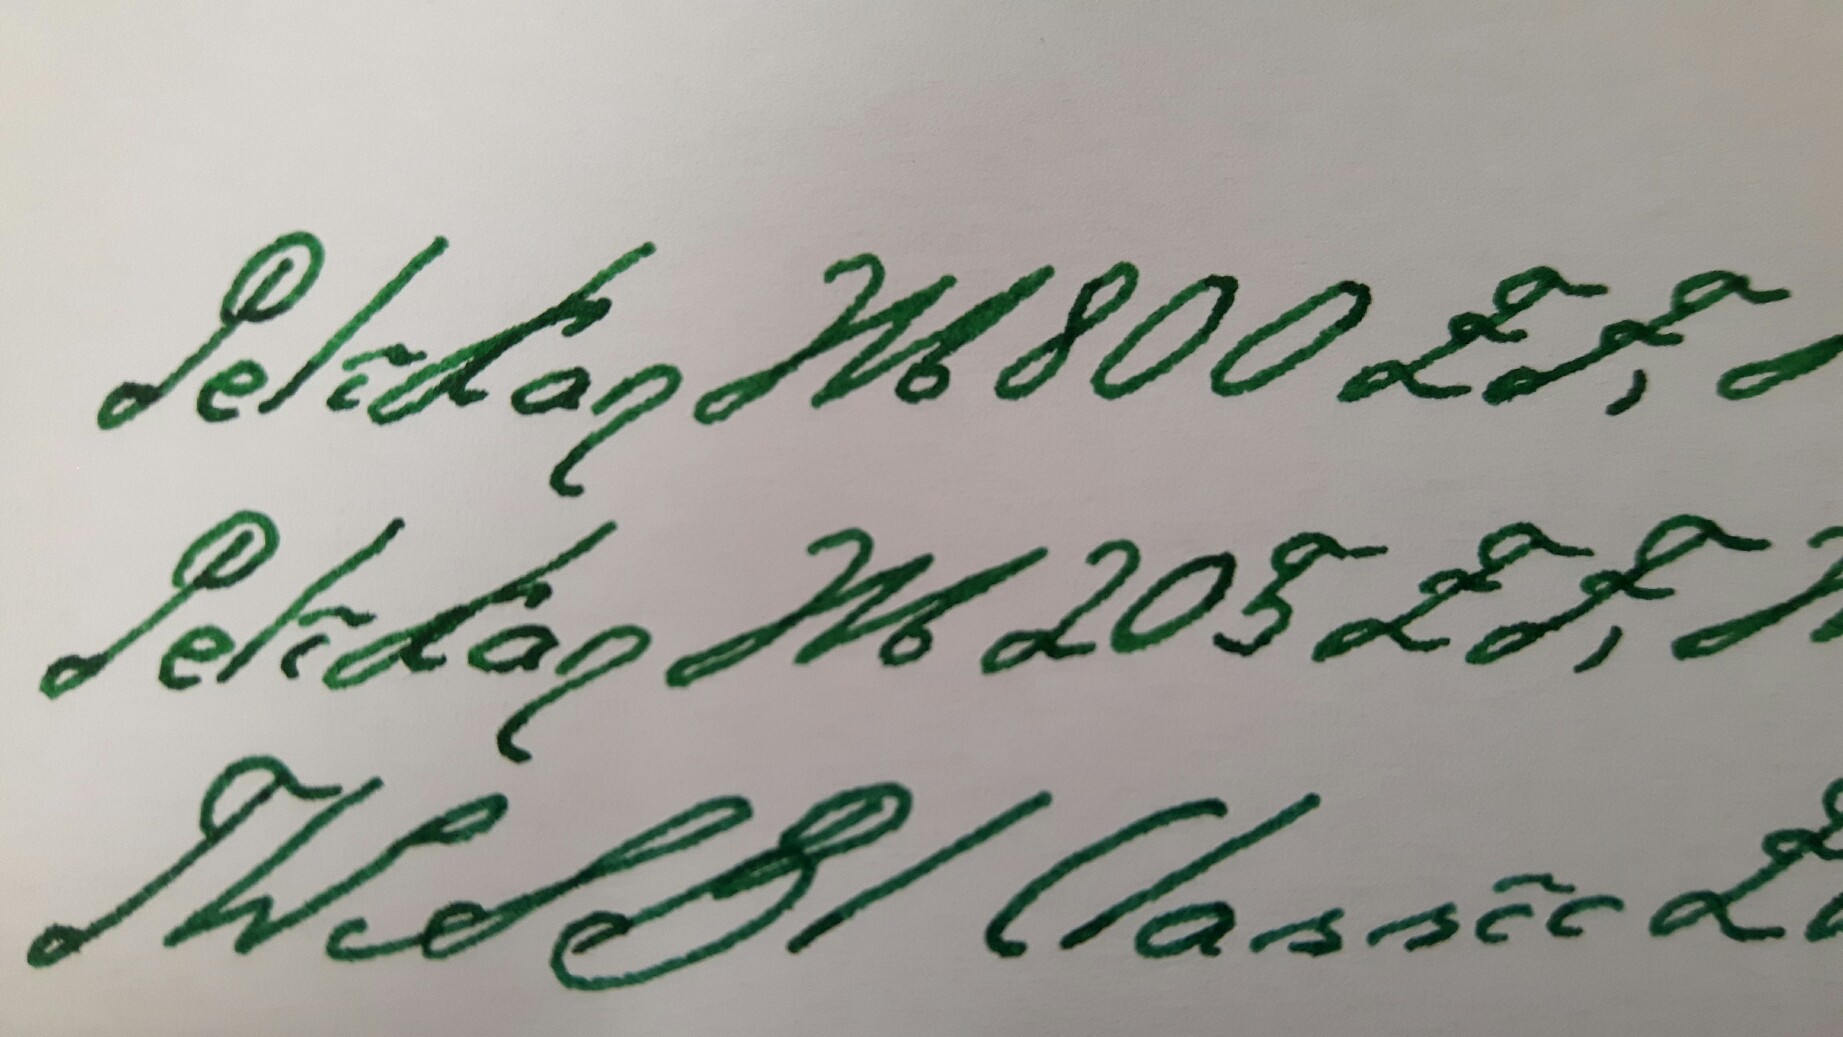 Pelikan M800 EF,
Pelikan M205 EF,
TWSBI Classic